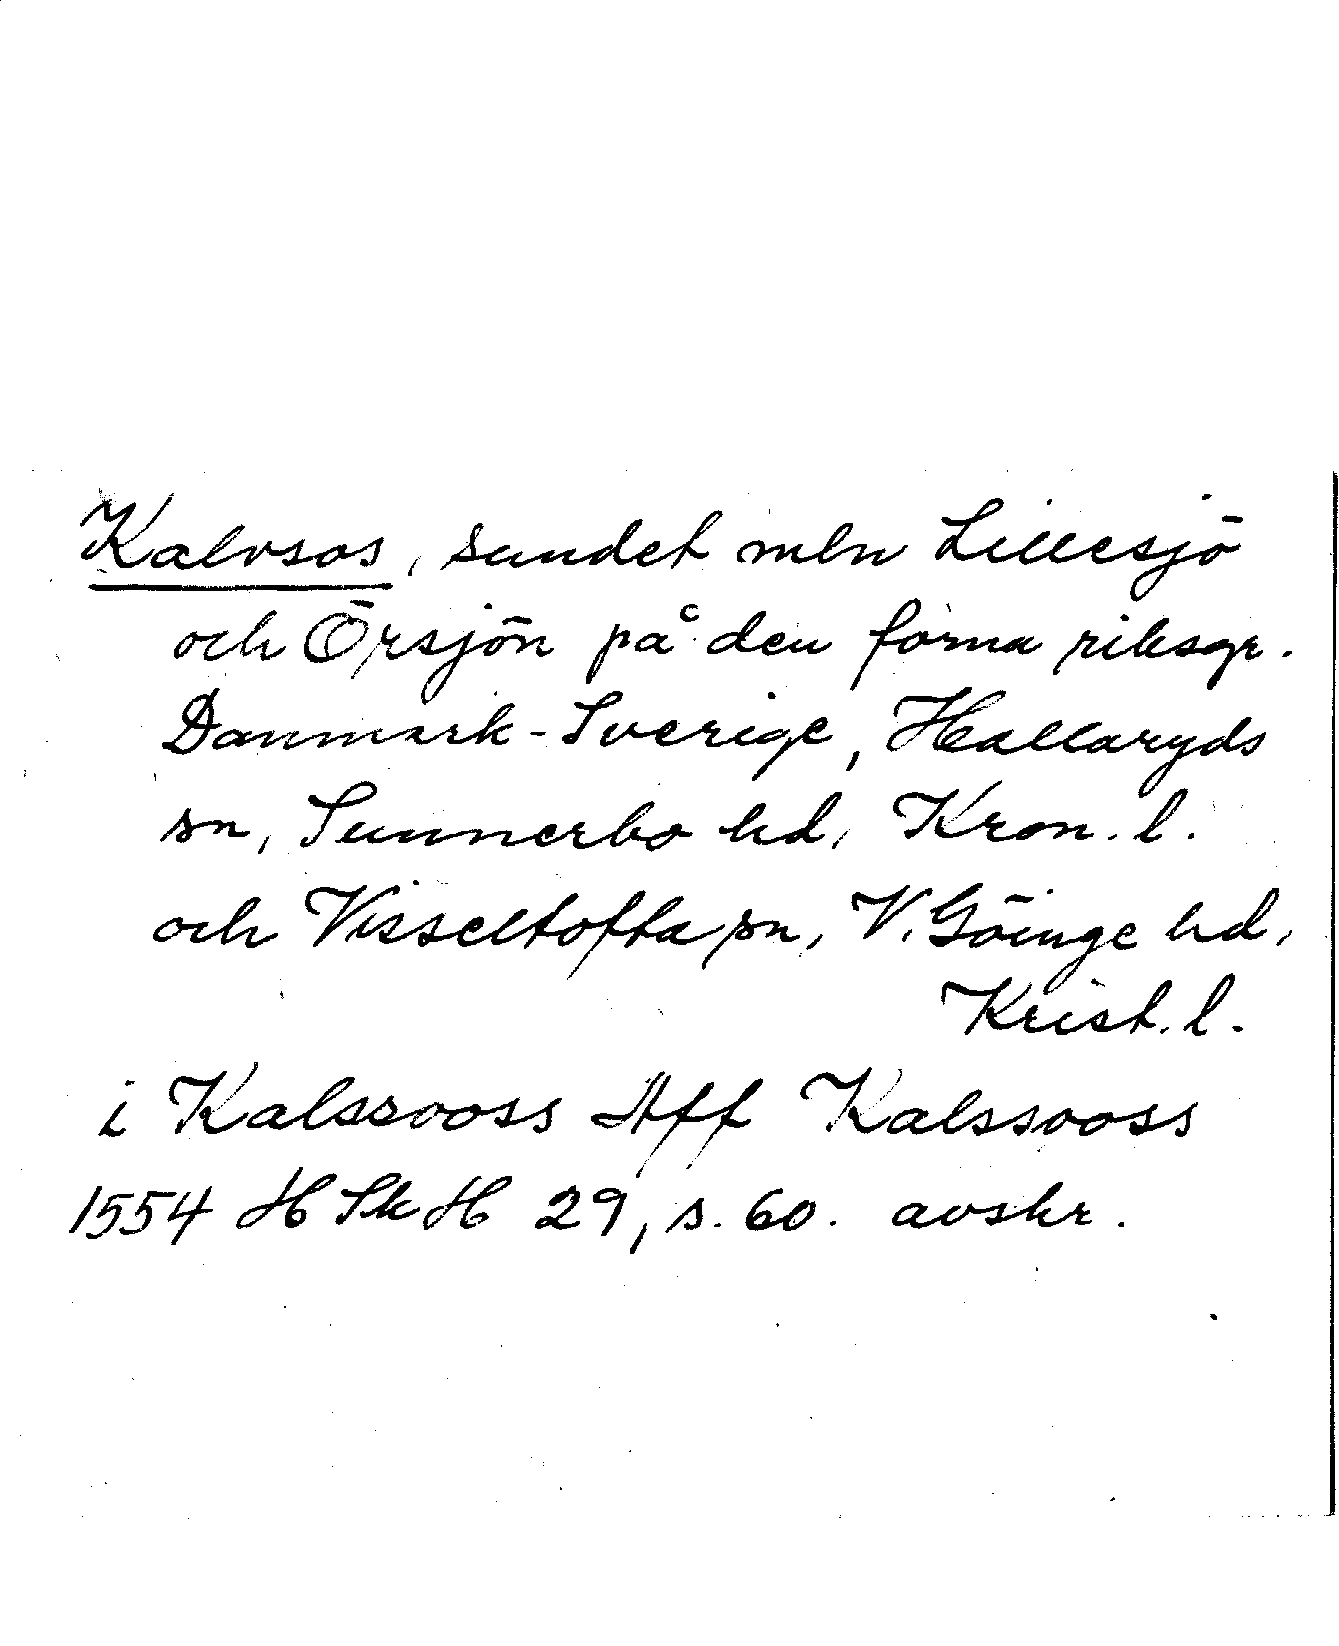 Kalvsos, sundet mln Lillesjö
och Örsjön på den forna riksgr.
Danmark-Sverige, Hallaryds
sn, Sunnerbo hd, Kron. l.
och Visseltofta sn, V. Göinge hd,
Krist. l.
i Kalssooss Aff Kalssooss
1554 HSkH 29, s. 60. avskr.